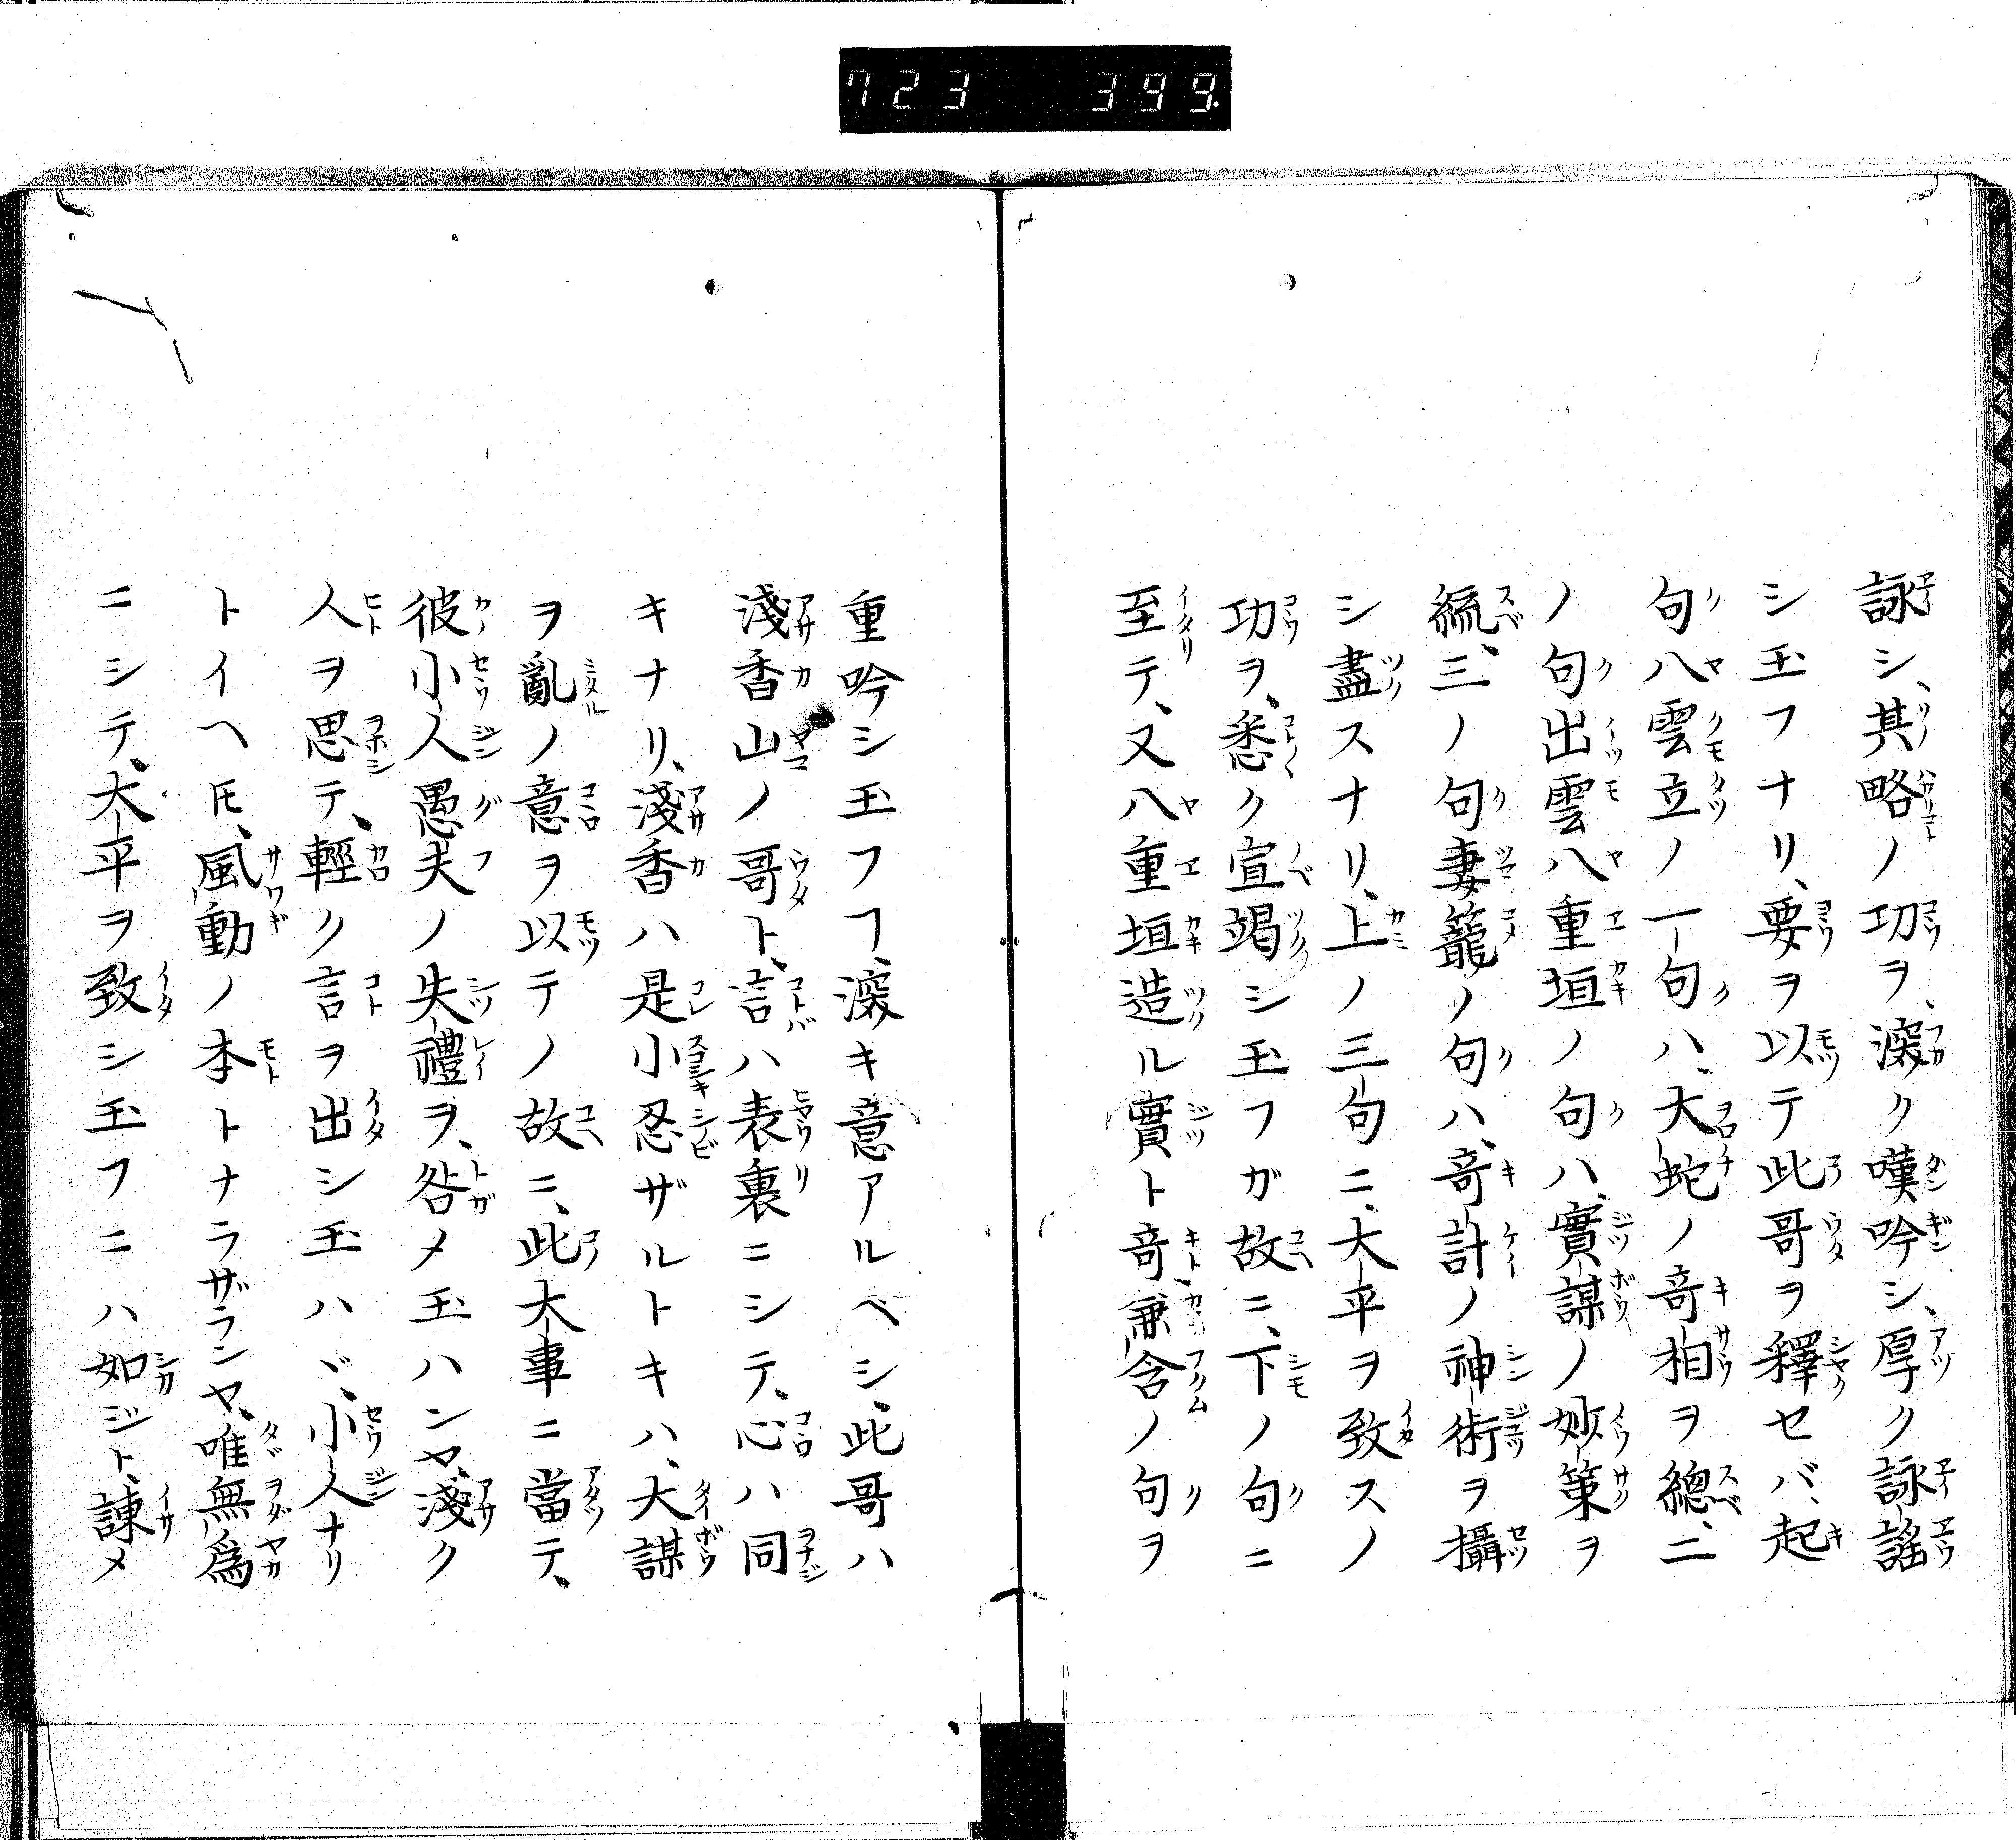 723 399.
詠シ、其略ノ功ヲ、深ク嘆吟シ、厚ク詠謠
シ玉フナリ、要ヲ以テ此哥ヲ釋セバ、起
句八雲立ノ一句ハ、大蛇ノ奇相ヲ總、二
ノ句出雲八重垣ノ句ハ、實謀ノ妙策ヲ
統、三ノ句妻籠ノ句ハ、奇計ノ神術ヲ攝
シ盡スナリ、上ノ三句ニ、大平ヲ致スノ
功ヲ、悉ク宣竭シ玉フガ故ニ、下ノ句ニ
至テ、又八重垣造ル實ト奇、兼含ノ句ヲ
重吟シ玉フヿ、深キ意アルベシ、此哥ハ
淺香山ノ哥ト、言ハ表裏ニシテ、心ハ同
キナリ、淺香ハ是小忍ザルトキハ、大謀
ヲ亂ノ意ヲ以テノ故ニ、此大事ニ當テ、
彼小人愚夫ノ失禮ヲ、咎メ玉ハンヤ、淺ク
人ヲ思テ、輕ク言ヲ出シ玉ハヾ、小人ナリ
トイヘ𪜈、風動ノ本トナラザランヤ、唯無爲
ニシテ、大平ヲ致シ玉フニハ如ジト、諫メ